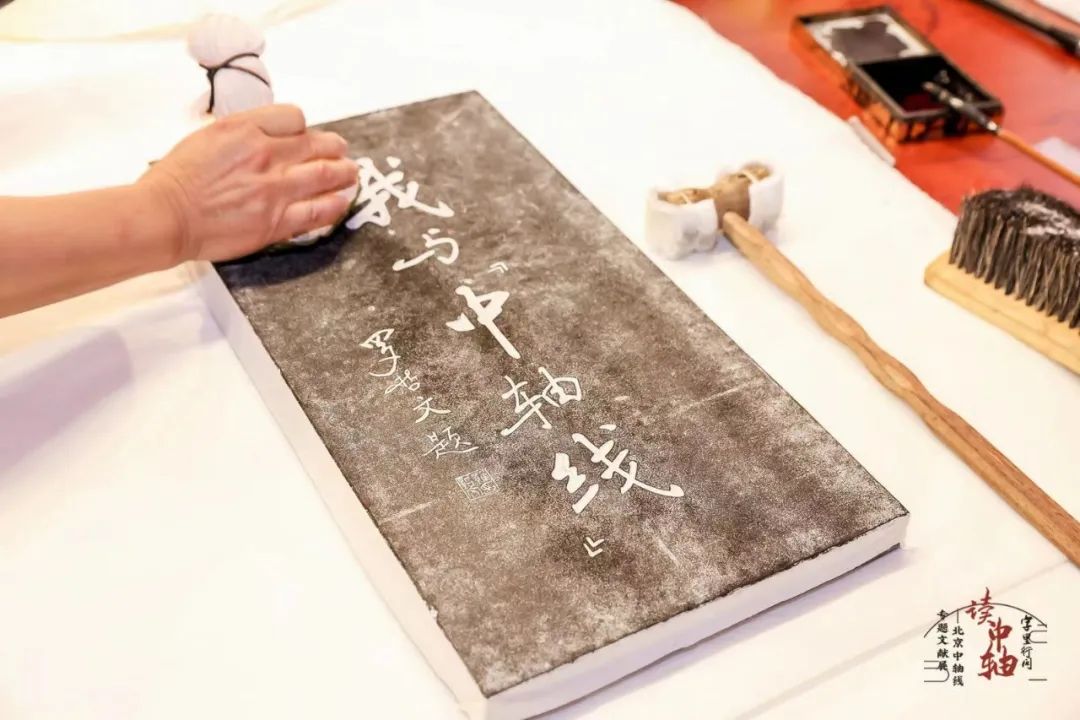 我与“中轴线”
罗哲文题
字里行间
读中轴
北京中轴线
专题文献展